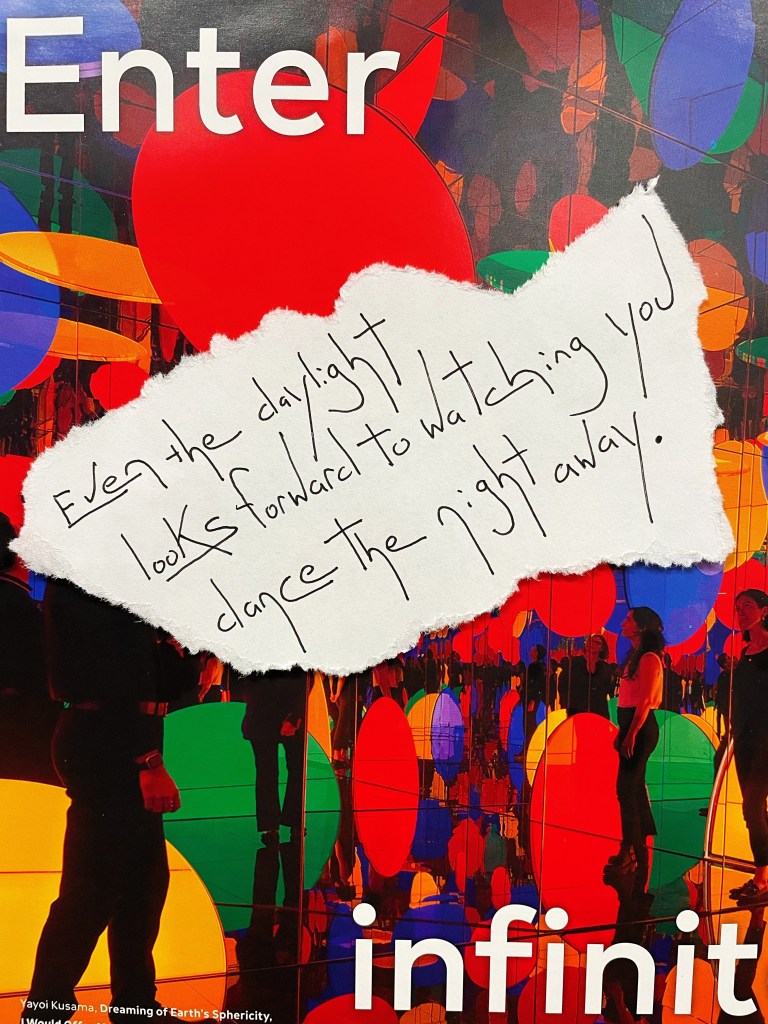 Enter
Even the daylight
looks forward to watching you
dance the night away.
infinit
Yayoi Kusama, Dreaming of Earth's Sphericity,
I Would